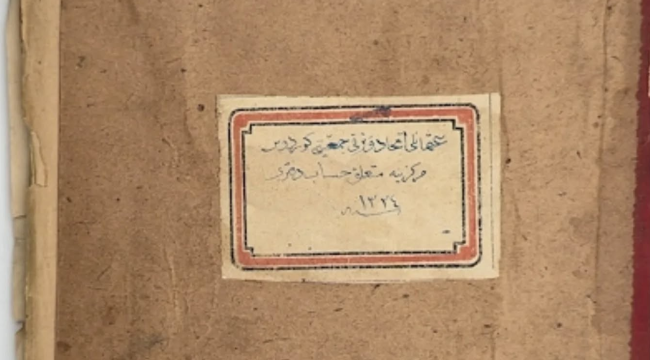 عثمانلی اتحاد و ترقی جمعیتی كوردوس
مركزینه متعلق حساب دفتری
سنه ١٣٢٤